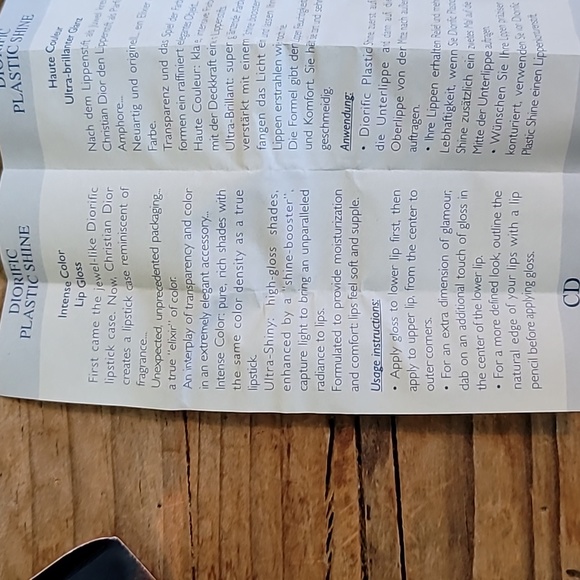 DIORIFIC
PLASTIC SHINE
Intense Color
Lip Gloss
First came the jewel-like Diorific
lipstick case. Now, Christian Dior
creates a lipstick case reminiscent of
fragrance...
Unexpected, unprecedented packaging...
a true "elixir" of color.
An interplay of transparency and color
in an extremely elegant accessory...
Intense Color: pure, rich shades with
the same color density as a true
lipstick.
Ultra-Shiny: high-gloss shades,
enhanced by a "shine-booster",
capture light to bring an unparalleled
radiance to lips.
Formulated to provide moisturization
and comfort: lips feel soft and supple.
Usage instructions:
• Apply gloss to lower lip first, then
apply to upper lip, from the center to
outer corners.
• For an extra dimension of glamour,
dab on an additional touch of gloss in
the center of the lower lip.
• For a more defined look, outline the
natural edge of your lips with a lip
pencil before applying gloss.
CD
DIORIFIC
PLASTIC SHINE
Haute Couleur
Ultra-brillanter Glanz
Nach dem Lippenstift
Christian Dior den Lippenstift als
Amphore...
Neuartig und originell
Farbe.
Transparenz und das Spiel der
formen ein raffiniert
Haute Couleur: klare
mit der Deckkraft eines
Ultra-Brillant: super
verstärkt mit einem
fangen das Licht
Lippen erstrahlen
Die Formel gibt den
und Komfort. Sie
geschmeidig.
Anwendung:
• Diorific Plastic
die Unterlippe
Oberlippe von der
auftragen.
• Ihre Lippen erhalten
Lebhaftigkeit, wenn Sie Diorific
Shine zusätzlich ein
Mitte der Unterlippe
• Wünschen Sie Ihre Lippen
konturiert, verwenden Sie
Plastic Shine einen Lippenkonturenstift